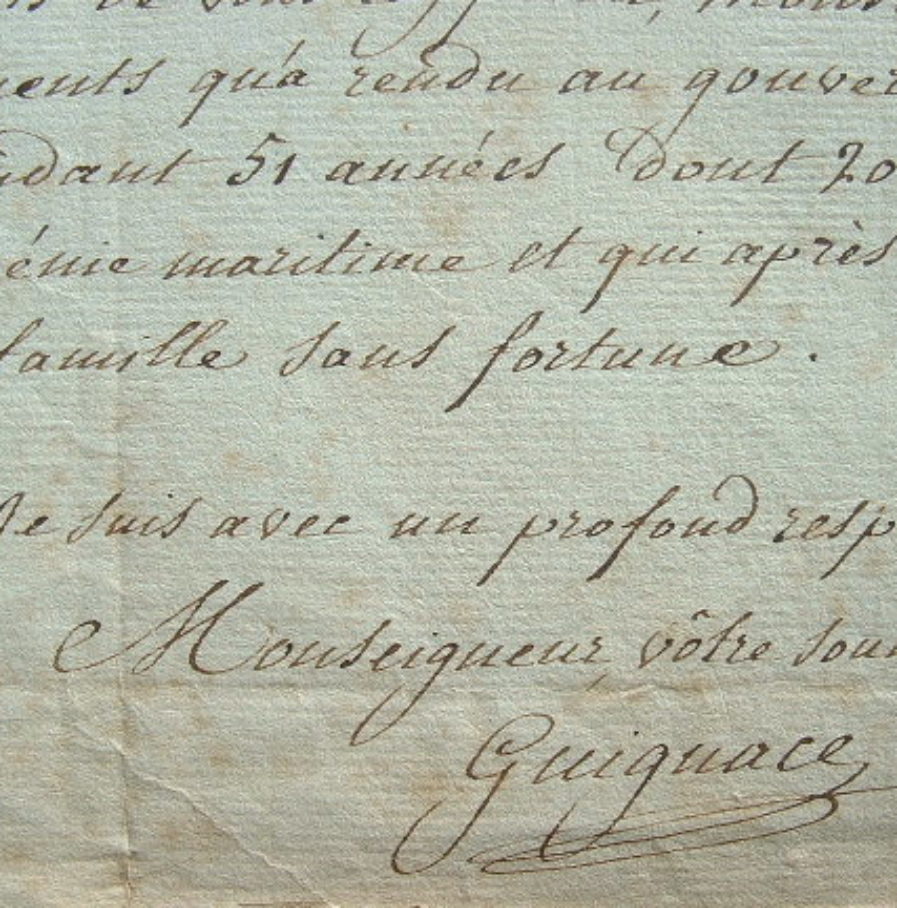 ments qu'a rendu au gouver
ndant 51 années dont 20
énie maritime et qui après
famille sans fortune.
Je suis avec un profond resp
Monseigneur, vôtre soum
Guignace